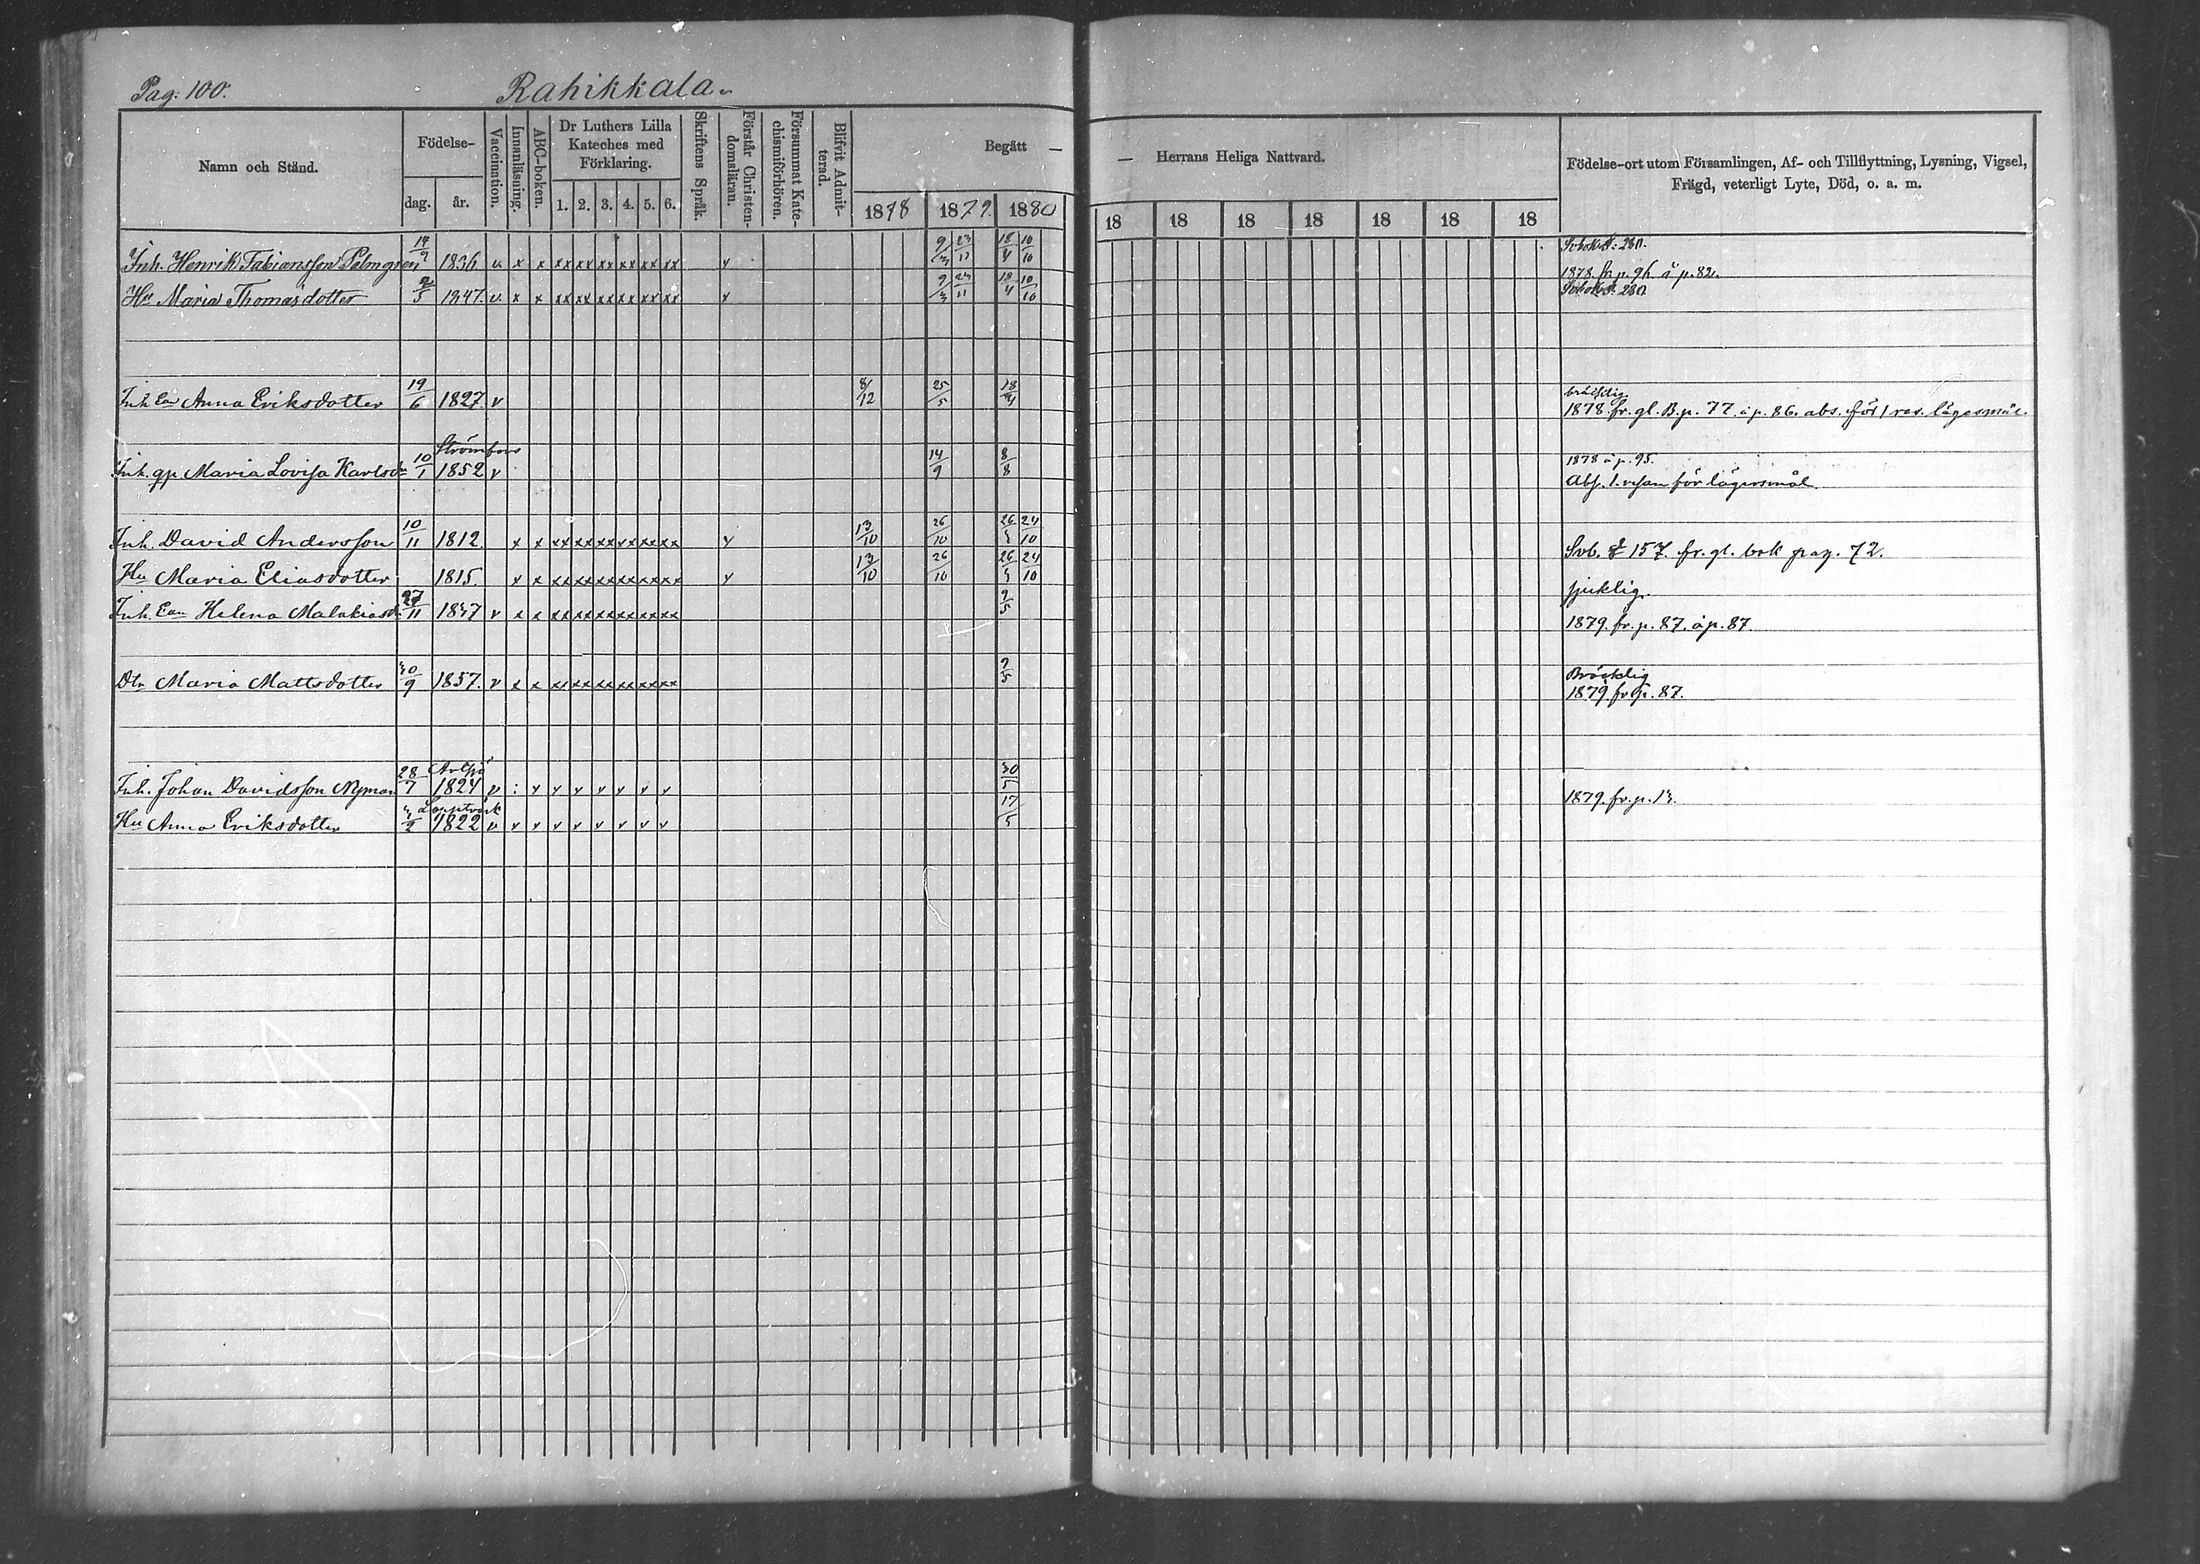 Pag: 100.
Rahikkala.
Namn och Stånd.
Födelse-
dag. år.
Vaccination.
Innanläsning.
ABC-boken.
Dr Luthers Lilla
Kateches med
Förklaring.
1. 2. 3. 4. 5. 6.
Skriftens Språk.
Förstår Christen-
domsläran.
Försummat Kate-
chismiförhören.
Blifvit Admit-
terad.
Begått —
— Herrans Heliga Nattvard.
1878 1879. 1880
18 18 18 18 18 18 18
Födelse-ort utom Församlingen, Af- och Tillflyttning, Lysning, Vigsel,
Frägd, veterligt Lyte, Död, o. a. m.
Inh. Henrik Fabiansson Palmgren 1836 v x x xx xx xx xx xx xx v 9/3 23/11 18/4 10/10
1878 fr p. 96. å p. 82.
Hu Maria Thomasdotter 2/5 1847. v. x x xx xx xx xx xx xx x 9/3 23/11 18/4 10/10
Inh Ea Anna Eriksdotter 19/6 1827. v 8/12 25/5 18/4
bräcklig
1878. fr. gl. B. p. 77. å p. 86. abs. för 1 res. lägersmål.
Strömfors
Inh. gp. Maria Lovisa Karlsdr 10/1 1852 v 14/9 8/8
1878 å p. 95.
Abs. 1. resan för lägersmål.
Inh. David Andersson 10/11 1812. x x xx xx xx xx xx xx v 13/10 26/10 24/10
Svb. 157. fr. gl. bok pag. 72.
Hu Maria Eliasdotter 1815. x x xx xx xx xx xx xx v 13/10 26/10 24/10
sjuklig.
Inh. Ean Helena Malakiasdr 27/11 1837 v x x xx xx xx xx xx xx 9/5
1879. fr. p. 87. å p. 87.
Dtr Maria Mattsdotter 30/9 1857. v x x xx xx xx xx xx xx 9/5
Bräcklig
1879 fr. p. 87.
Artsjö
Inh. Johan Davidsson Nyman 28/7 1824 v : v v v v v v v 30/5
1879. fr. p. 13.
Hu Anna Eriksdotter 1822 v v v v v v v v v 17/5